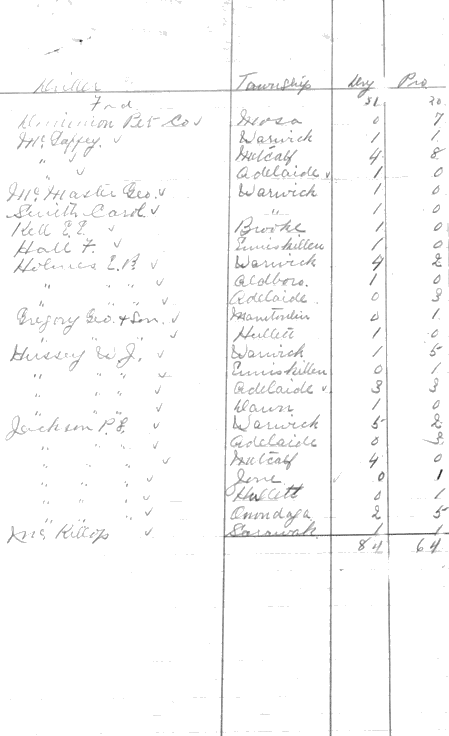 Driller Township Dry Pro
Fwd 51 20
Dominion Pet Co ✓ Mosa 0 7
Mc Gaffey. ✓ Warwick 1 1
" ✓ Metcalf 4 8
" ✓ Adelaide ✓ 1 0
Mc Master Geo. ✓ Warwick 1 0
Smith Carol ✓ " 1 0
Kell E.E. ✓ Brooke 1 0
Hall F. ✓ Enniskillen 1 0
Holmes E.B ✓ Warwick 4 2
" " " ✓ Aldboro. 1 0
" " " ✓ Adelaide 0 3
Gregory Geo. & Son. ✓ Manitoulin 0 1
" " ✓ Hullett 1 0
Hussey W J. ✓ Warwick 1 5
" " ✓ Enniskillen 0 1
" " ✓ Adelaide ✓ 3 3
" " ✓ Dawn 1 0
Jackson P.S. ✓ Warwick 5 2
" " ✓ Adelaide 0 3
" " ✓ Metcalf 4 0
" " ✓ ✓ 0 1
" " ✓ Hullett 0 1
" " ✓ Onondaga 2 5
Mc Killop ✓ Sarawak 1 1
84 64